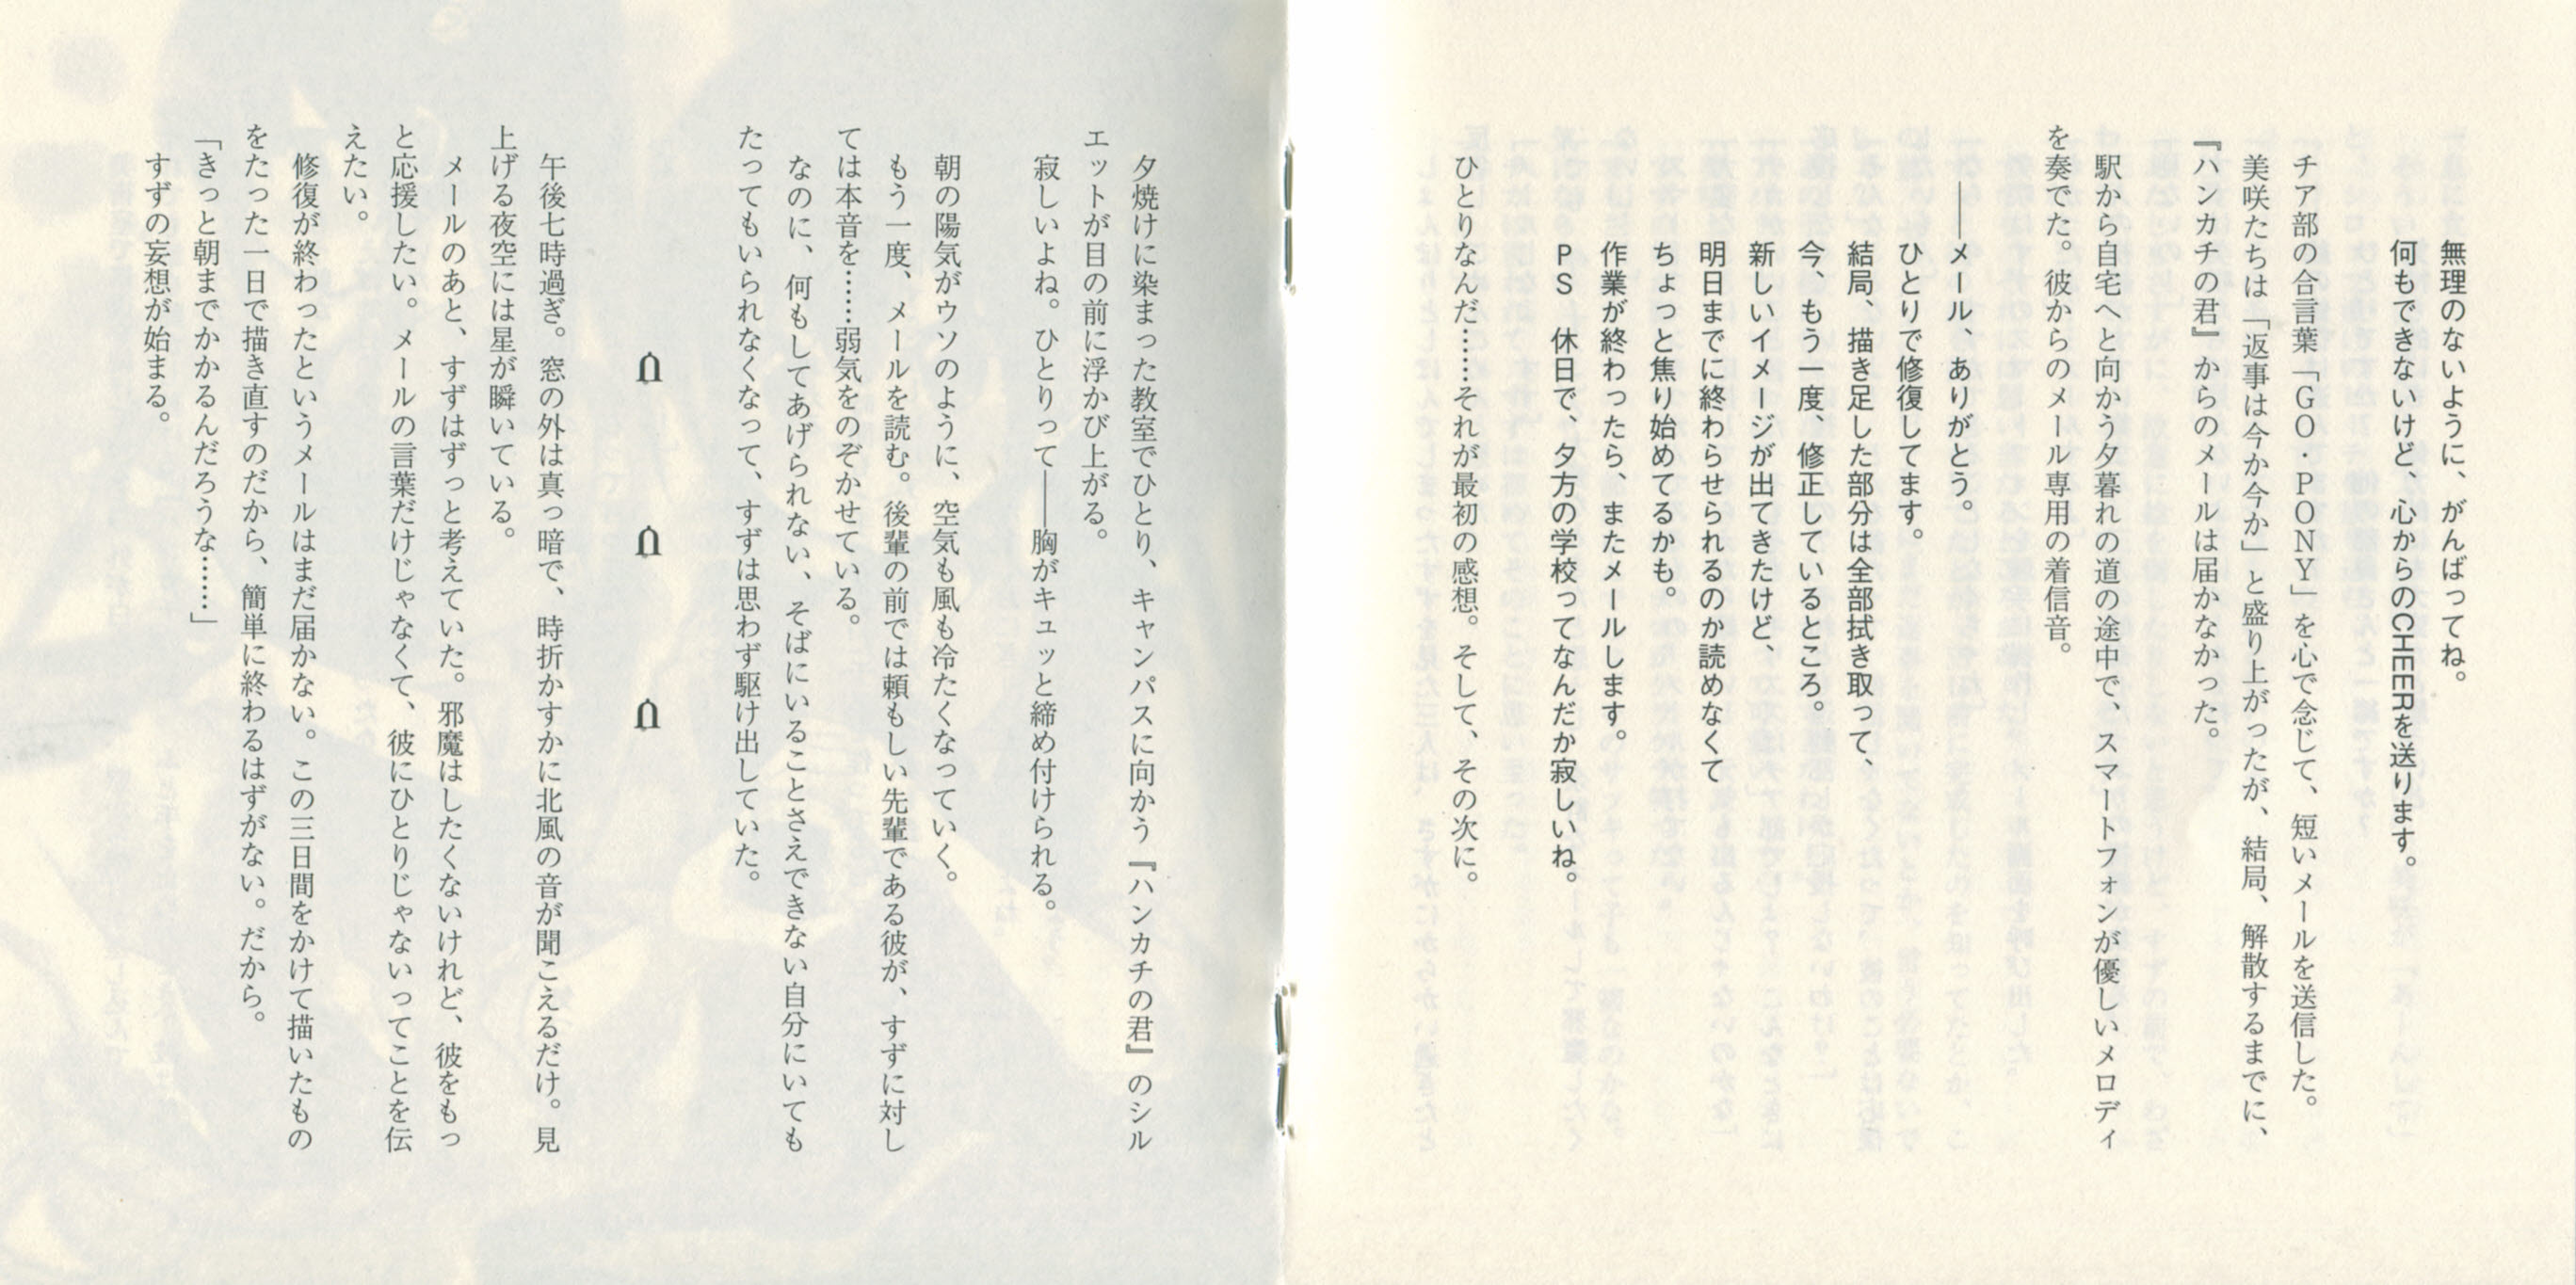 無理のないように、がんばってね。
何もできないけど、心からのCHEERを送ります。
チア部の合言葉「GO・PONY」を心で念じて、短いメールを送信した。
美咲たちは「返事は今か今か」と盛り上がったが、結局、解散するまでに、
『ハンカチの君』からのメールは届かなかった。
駅から自宅へと向かう夕暮れの道の途中で、スマートフォンが優しいメロディ
を奏でた。彼からのメール専用の着信音。
――メール、ありがとう。
ひとりで修復してます。
結局、描き足した部分は全部拭き取って、
今、もう一度、修正しているところ。
新しいイメージが出てきたけど、
明日までに終わらせられるのか読めなくて
ちょっと焦り始めてるかも。
作業が終わったら、またメールします。
PS　休日で、夕方の学校ってなんだか寂しいね。
ひとりなんだ……それが最初の感想。そして、その次に。
夕焼けに染まった教室でひとり、キャンパスに向かう『ハンカチの君』のシル
エットが目の前に浮かび上がる。
寂しいよね。ひとりって――胸がキュッと締め付けられる。
朝の陽気がウソのように、空気も風も冷たくなっていく。
もう一度、メールを読む。後輩の前では頼もしい先輩である彼が、すずに対し
ては本音を……弱気をのぞかせている。
なのに、何もしてあげられない、そばにいることさえできない自分にいても
たってもいられなくなって、すずは思わず駆け出していた。
午後七時過ぎ。窓の外は真っ暗で、時折かすかに北風の音が聞こえるだけ。見
上げる夜空には星が瞬いている。
メールのあと、すずはずっと考えていた。邪魔はしたくないけれど、彼をもっ
と応援したい。メールの言葉だけじゃなくて、彼にひとりじゃないってことを伝
えたい。
修復が終わったというメールはまだ届かない。この三日間をかけて描いたもの
をたった一日で描き直すのだから、簡単に終わるはずがない。だから。
「きっと朝までかかるんだろうな……」
すずの妄想が始まる。